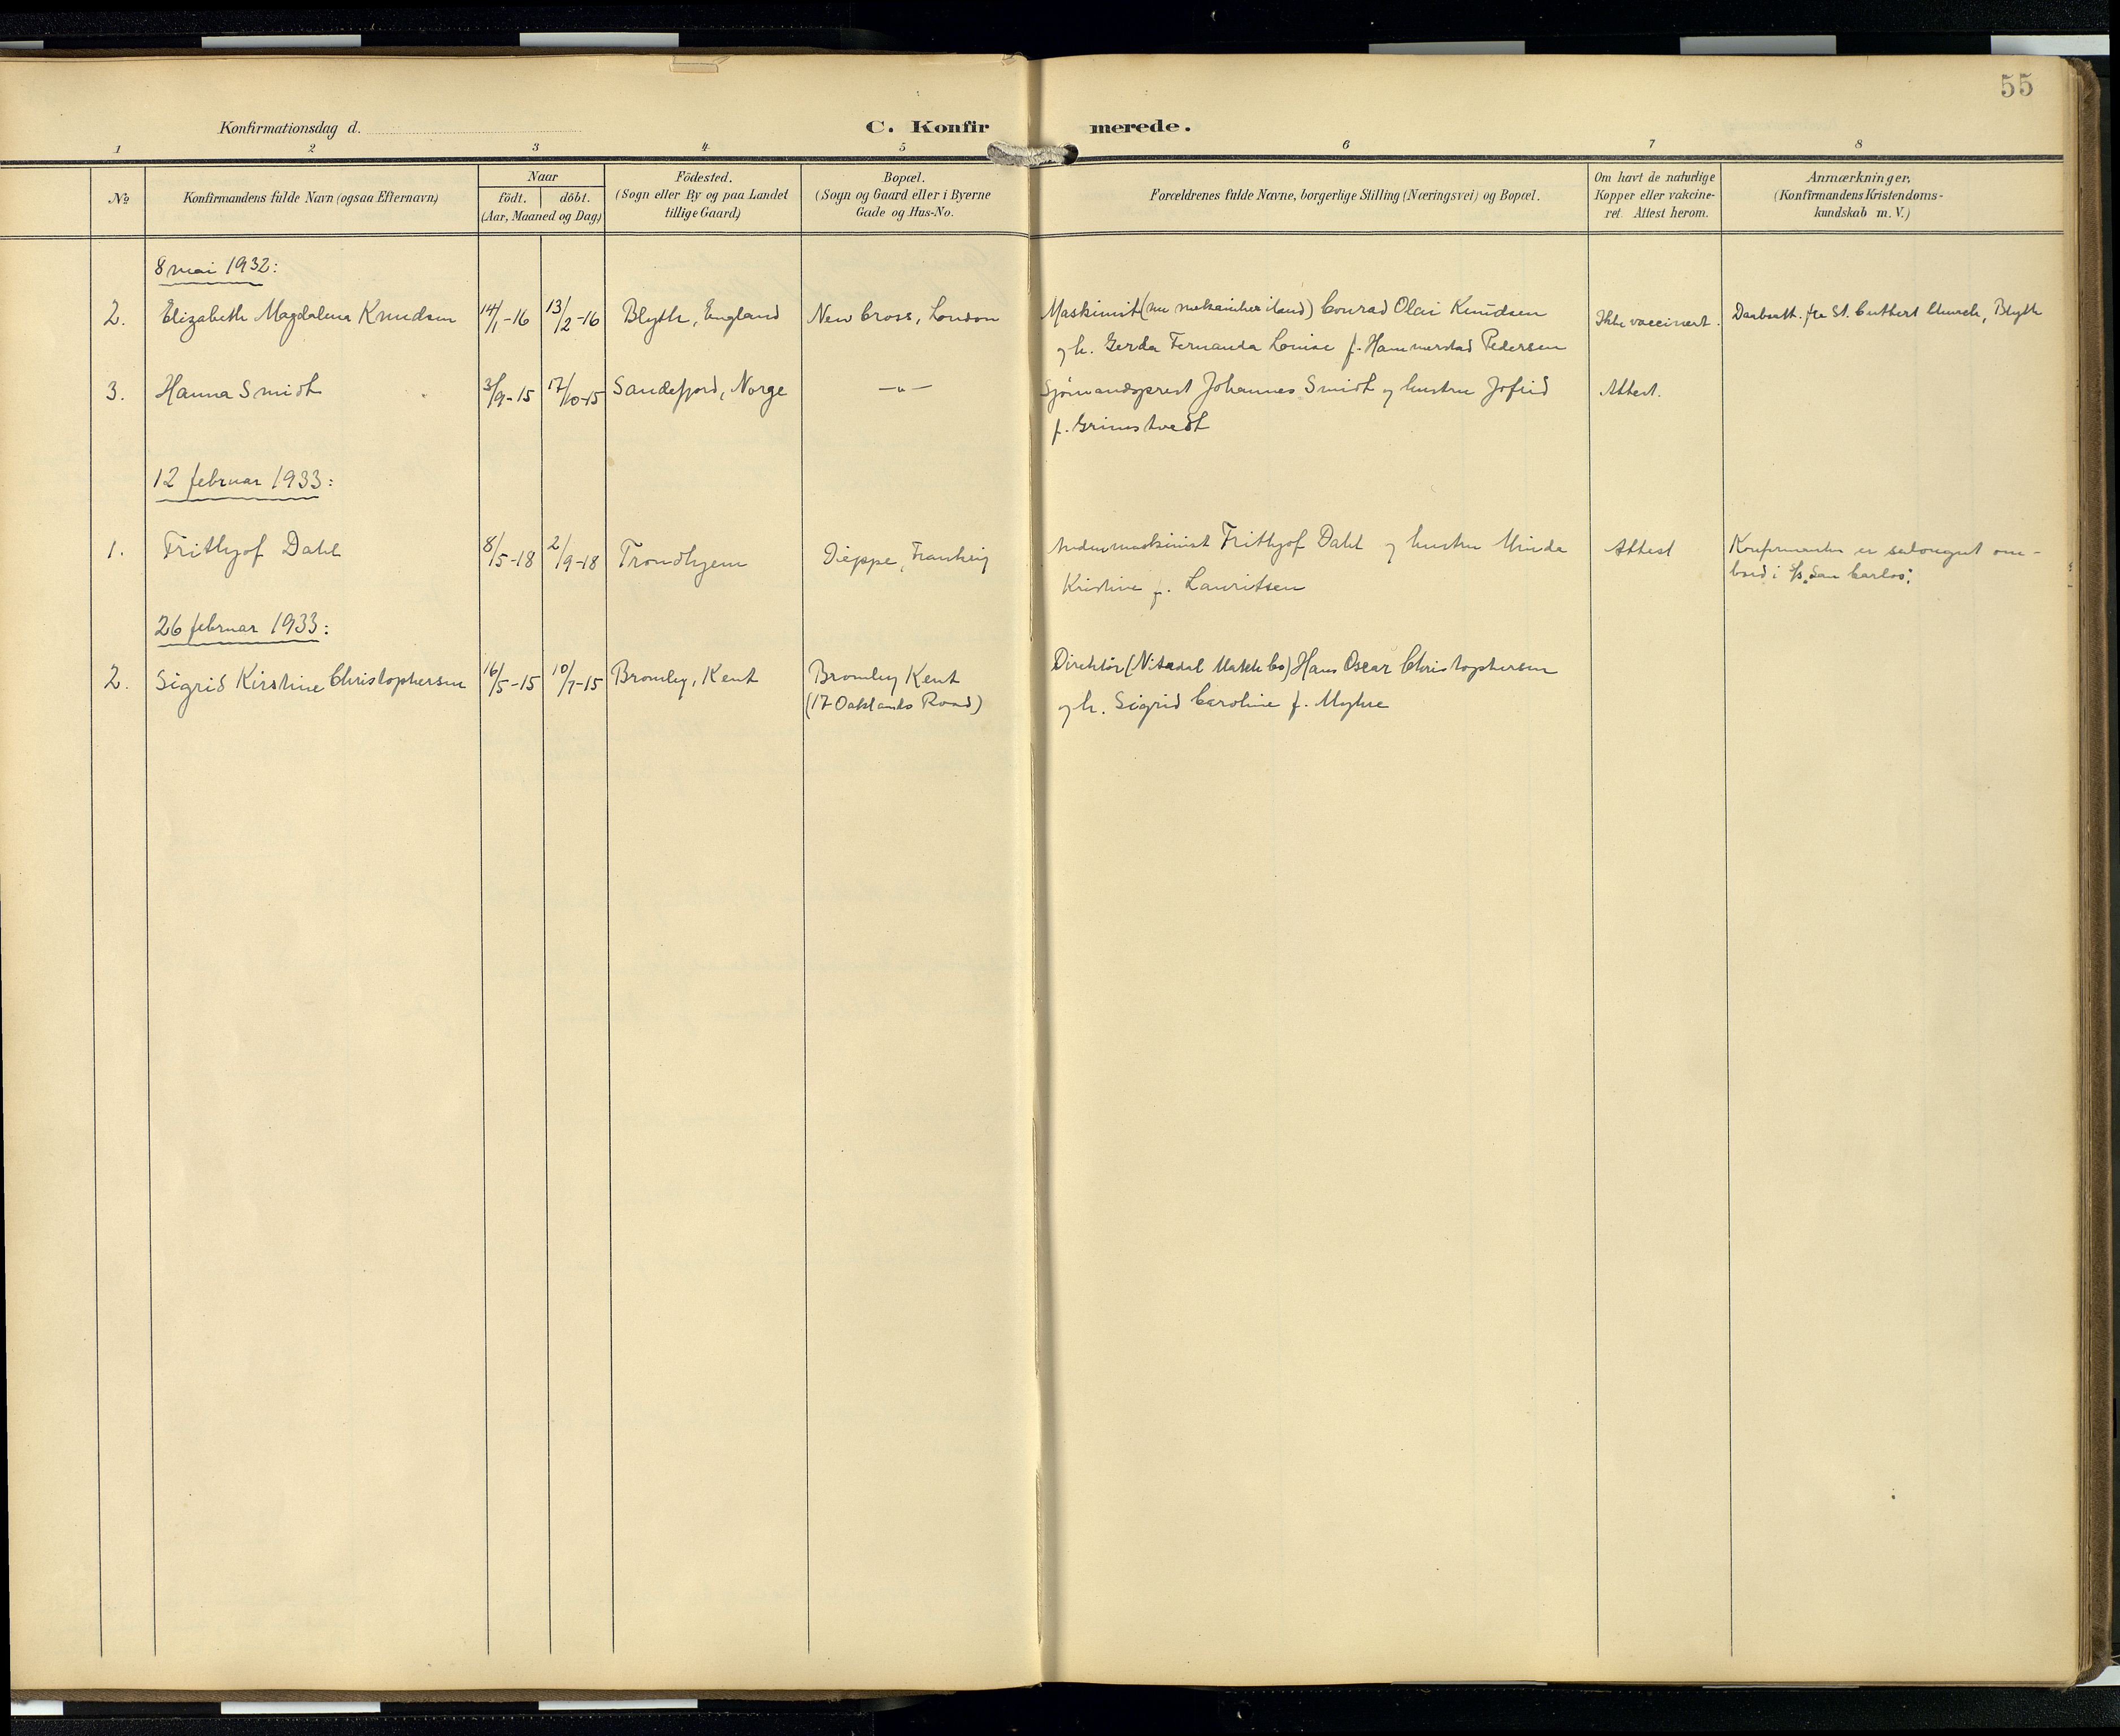 55
Konfirmationsdag d.
C. Konfirmerede.
1 2 3 4 5 6 7 8
No
Konfirmandens fulde Navn (ogsaa Efternavn)
Naar
födt. döbt.
(Aar, Maaned og Dag)
Födested.
(Sogn eller By og paa Landet
tillige Gaard)
Bopæl.
(Sogn og Gaard eller i Byerne
Gade og Hus-No.
Forældrenes fulde Navne, borgerlige Stilling (Næringsvei) og Bopæl.
Om havt de naturlige
Kopper eller vakcine-
ret. Attest herom.
Anmærkninger,
(Konfirmandens Kristendoms-
kundskab m. V.)
8 mai 1932:
2. Elizabeth Magdalena Knudsen 14/1-16 13/2-16 Blyth, England New Cross, London Maskinist (nu mekaniker iland) Conrad Olai Knudsen Ikke vaccinert. Daabsatt. fra St. Cuthbert Church, Blyth
og h. Gerda Fernanda Louise f. Hammerstad Pedersen
3. Hanna Smidt 3/9-15 17/10-15 Sandefjord, Norge —„— Sjømandsprest Johannes Smidt og hustru Jofrid Attest.
f. Grimstvedt
12 februar 1933:
1. Frithjof Dahl 8/5-18 2/9-18 Trondhjem Dieppe, Frankrig Maskinist Frithjof Dahl og hustru Minda Attest Konfirmanten er salongut om-
Kristine f. Lauritsen
bord i S/S „San Carlos".
26 februar 1933:
2. Sigrid Kirstine Christophersen 16/5-15 10/7-15 Bromley, Kent Bromley Kent Direktør (Nitedal Match Co) Hans Oscar Christophersen
(17 Oaklands Road) og h. Sigrid Caroline f. Myhre